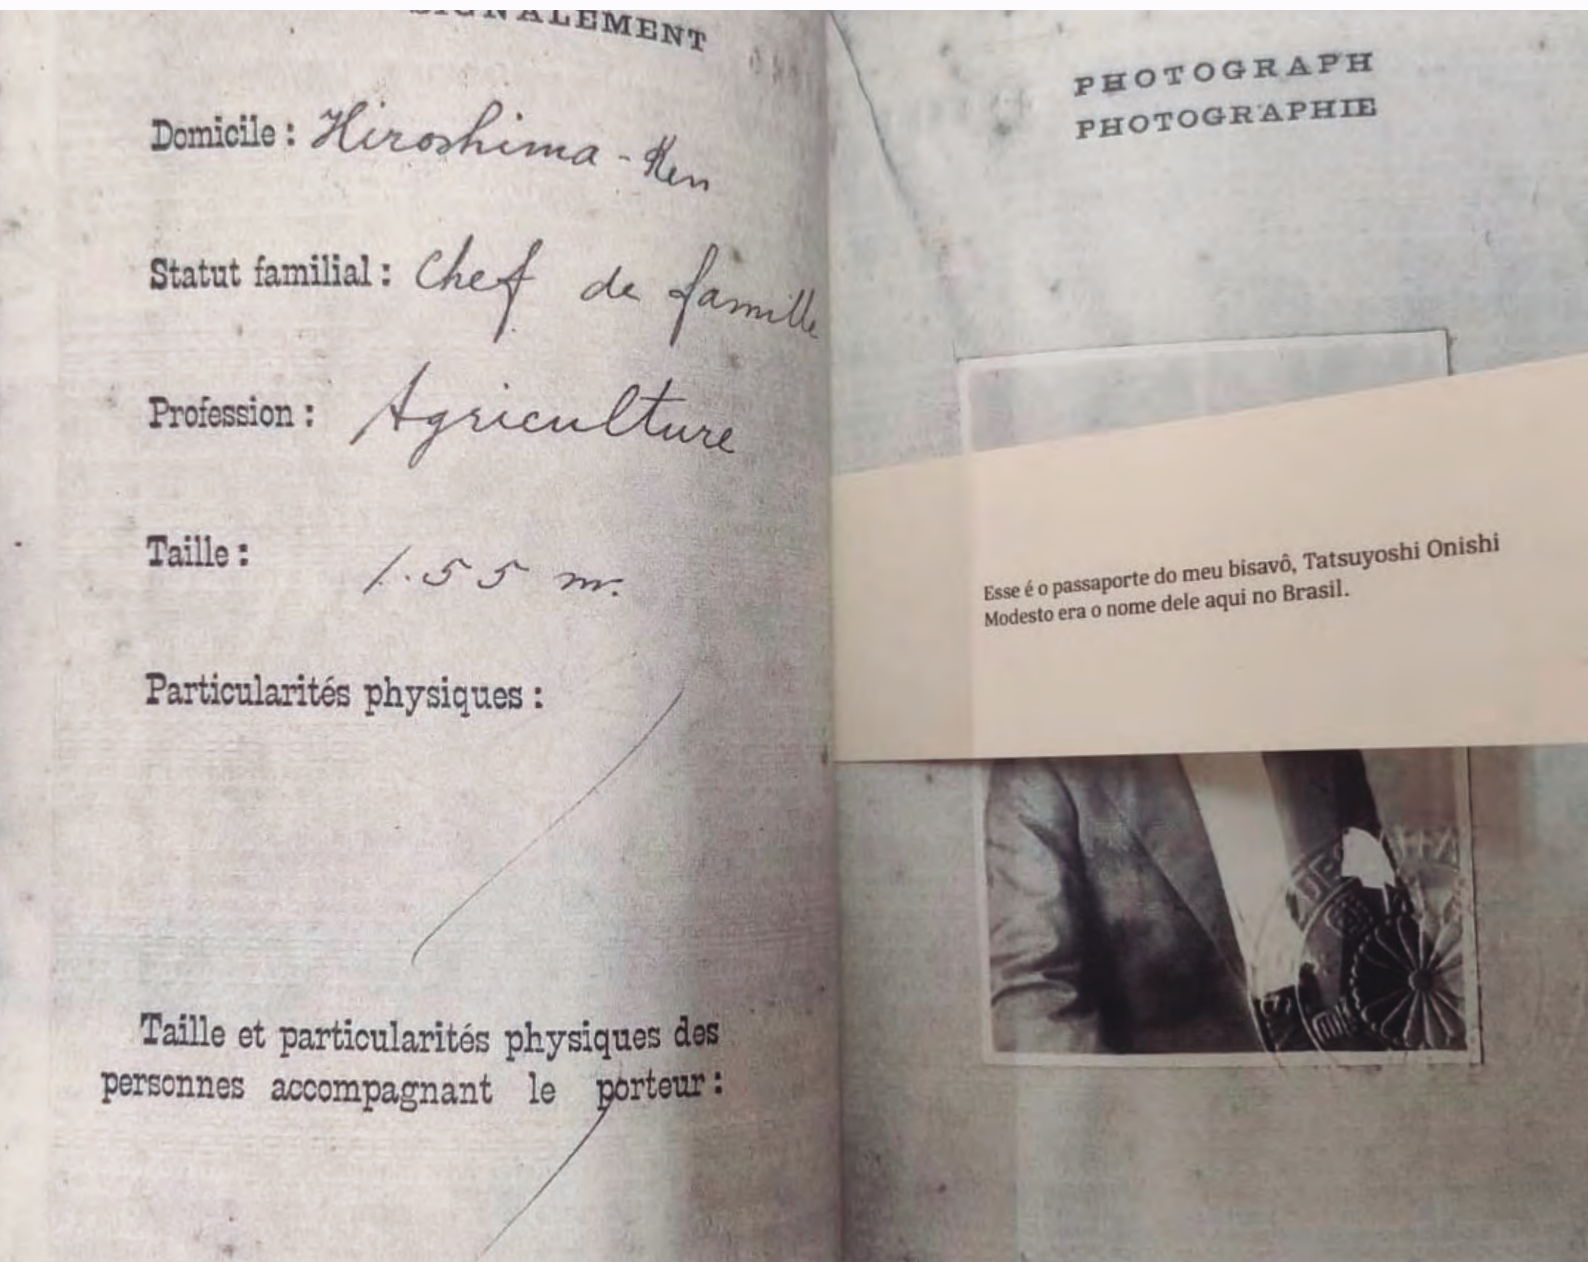 SIGNALEMENT
Domicile : Hiroshima - Ken
Statut familial : Chef de famille
Profession : Agriculture
Taille : 1.55 m.
Particularités physiques :
Taille et particularités physiques des
personnes accompagnant le porteur :
PHOTOGRAPH
PHOTOGRAPHIE
Esse é o passaporte do meu bisavô, Tatsuyoshi Onishi
Modesto era o nome dele aqui no Brasil.